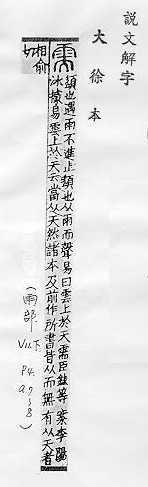 説文解字
大徐本
需 𩓣也遇雨不進止𩓣也从雨而聲易曰雲上於天需臣鉉等案李陽
冰據易雲上於天云當从天然諸本及前作所書皆从而無有从天者
相俞
切
(雨部 VII.下. P4. a.7~8)